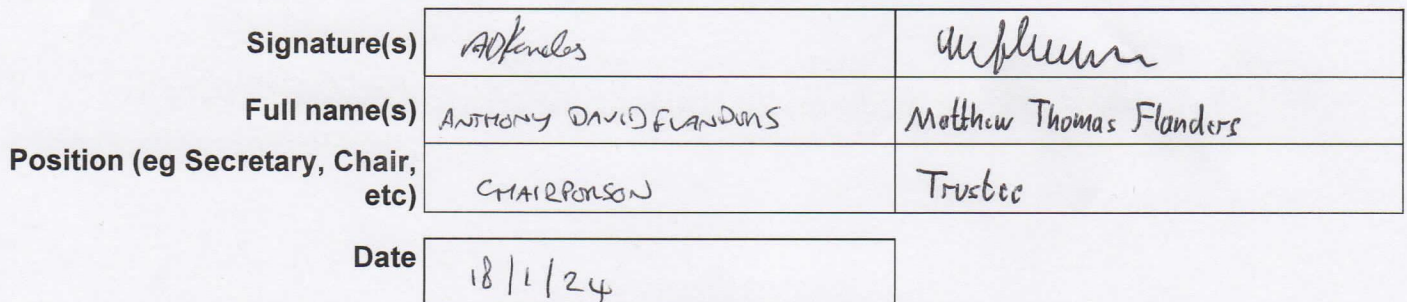 Signature(s)
Full name(s) ANTHONY DAVID FLANDERS Matthew Thomas Flanders
Position (eg Secretary, Chair,
etc) CHAIRPERSON Trustee
Date 18/1/24